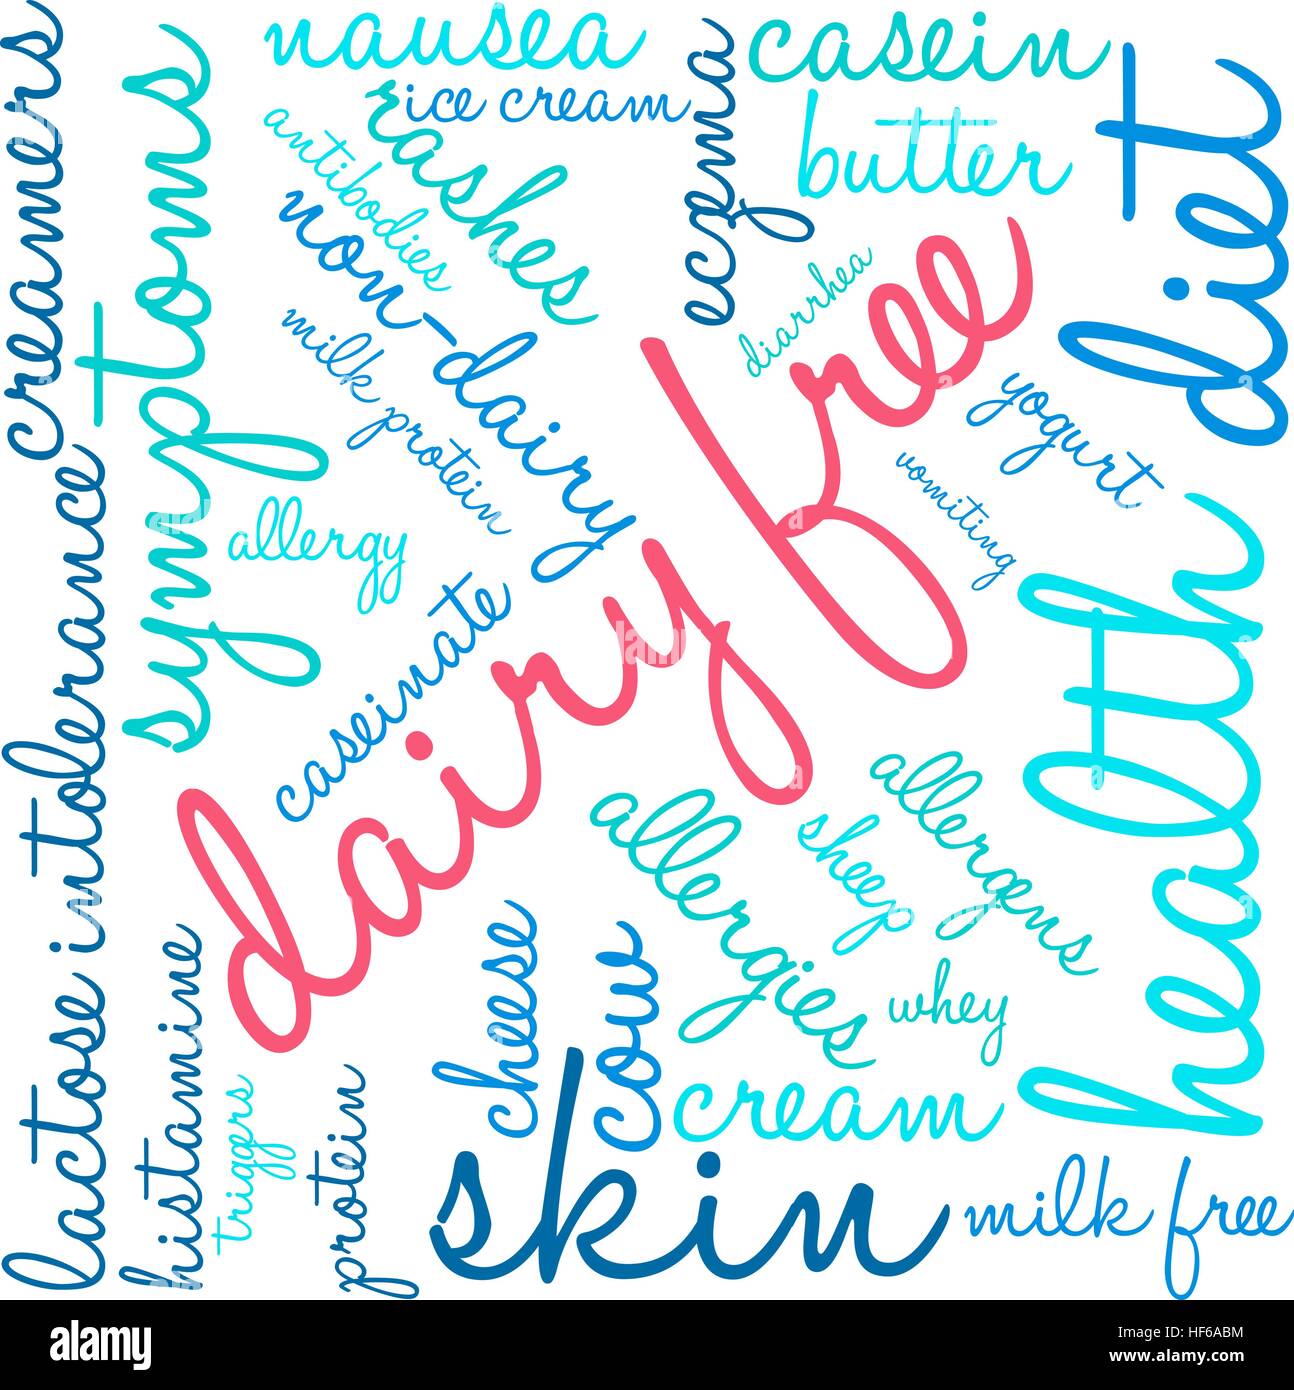 nausea
casein
ice cream
rashes
eczema
butter
diet
creamers
symptoms
antibodies
non-dairy
milk protein
diarrhea
dairy free
yogurt
vomiting
allergy
caseinate
lactose intolerance
health
allergies
sheep
allergens
whey
cheese
cow
cream
histamine
triggers
protein
skin
milk free
alamy
alamy
a
a
a
a
alamy stock photo
HF6ABM
www.alamy.com